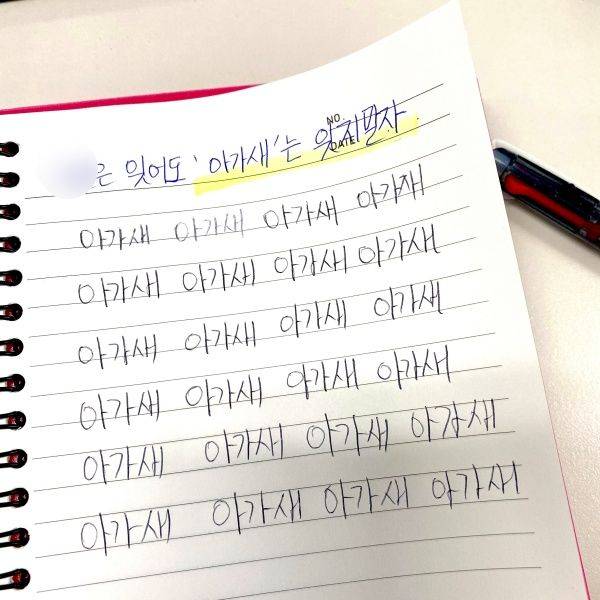 NO.
DATE
은 잊어도 '아가새'는 잊지말자
아가새 아가새 아가새 아가재
아가새 아가새 아가새 아가새
아가새 아가새 아가새 아가새
아가새 아가새 아가새 아가새
아가새 아가새 아가새 아가새
아가새 아가새 아가새 아가새